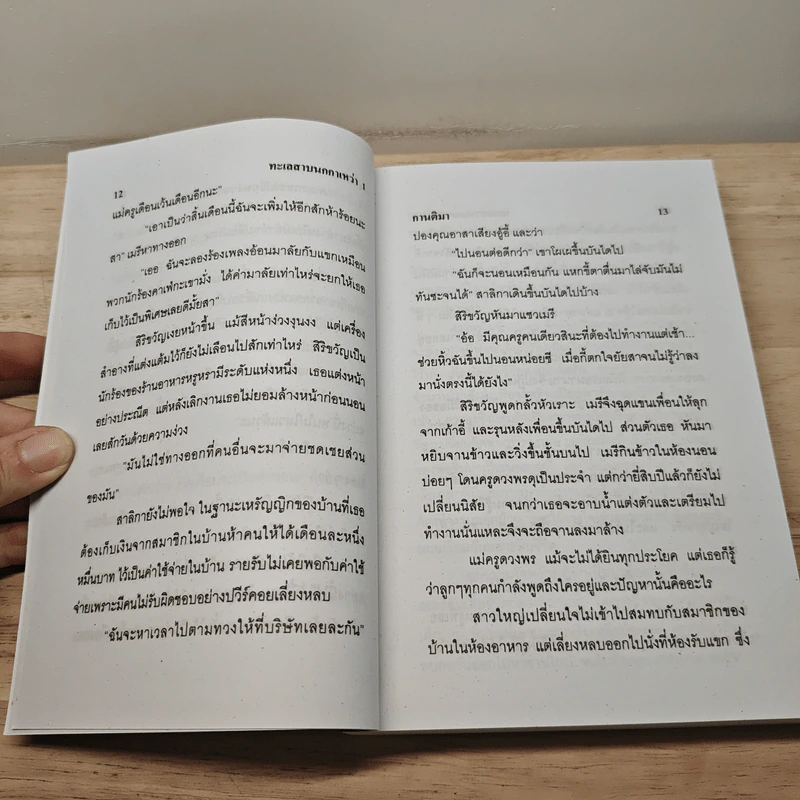 12
ทะเลสาบนกกาเหว่า 1
แม่ครูเดือนเว้นเดือนอีกนะ"
"เอาเป็นว่าสิ้นเดือนนี้ฉันจะเพิ่มให้อีกสักห้าร้อยนะ
สา" เมรีหาทางออก
"เออ ฉันจะลองร้องเพลงอ้อนมาลัยกับแขกเหมือน
พวกนักร้องคาเฟ่กะเขามั่ง ได้ค่ามาลัยเท่าไหร่จะยกให้เธอ
เก็บไว้เป็นพิเศษเลยดีมั้ยสา"
สิริขวัญเงยหน้าขึ้น แม้สีหน้าง่วงงุนงง แต่เครื่อง
สำอางที่แต่งแต้มไว้ก็ยังไม่เลือนไปสักเท่าไหร่ สิริขวัญเป็น
นักร้องของร้านอาหารหรูหรามีระดับแห่งหนึ่ง เธอแต่งหน้า
อย่างประณีต แต่หลังเลิกงานเธอไม่ยอมล้างหน้าก่อนนอน
เลยสักวันด้วยความง่วง
"มันไม่ใช่ทางออกที่คนอื่นจะมาจ่ายชดเชยส่วน
ของมัน"
สาลิกายังไม่พอใจ ในฐานะเหรัญญิกของบ้านที่เธอ
ต้องเก็บเงินจากสมาชิกในบ้านห้าคนให้ได้เดือนละหนึ่ง
หมื่นบาท ไว้เป็นค่าใช้จ่ายในบ้าน รายรับไม่เคยพอกับค่าใช้
จ่ายเพราะมีคนไม่รับผิดชอบอย่างปวีร์คอยเลี่ยงหลบ
"ฉันจะหาเวลาไปตามทวงให้ที่บริษัทเลยละกัน"
กานติมา
13
ปองคุณอาสาเสียงอู้อี้ และว่า
"ไปนอนต่อดีกว่า" เขาโผเผขึ้นบันไดไป
"ฉันก็จะนอนเหมือนกัน แหกขี้ตาตื่นมาไล่จับมันไม่
ทันซะจนได้" สาลิกาเดินขึ้นบันไดไปบ้าง
สิริขวัญหันมาแซวเมรี
"อ้อ มีคุณครูคนเดียวสินะที่ต้องไปทำงานแต่เช้า...
ช่วยหิ้วฉันขึ้นไปนอนหน่อยซี เมื่อกี้ตกใจยัยสาจนไม่รู้ว่าลง
มานั่งตรงนี้ได้ยังไง"
สิริขวัญพูดกลั้วหัวเราะ เมรีจึงฉุดแขนเพื่อนให้ลุก
จากเก้าอี้ และรุนหลังเพื่อนขึ้นบันไดไป ส่วนตัวเธอ หันมา
หยิบจานข้าวและวิ่งขึ้นชั้นบนไป เมรีกินข้าวในห้องนอน
บ่อยๆ โดนครูดวงพรดุเป็นประจำ แต่กว่ายี่สิบปีแล้วก็ยังไม่
เปลี่ยนนิสัย จนกว่าเธอจะอาบน้ำแต่งตัวและเตรียมไป
ทำงานนั่นแหละจึงจะถือจานลงมาล้าง
แม่ครูดวงพร แม้จะไม่ได้ยินทุกประโยค แต่เธอก็รู้
ว่าลูกๆทุกคนกำลังพูดถึงใครอยู่และปัญหานั้นคืออะไร
สาวใหญ่เปลี่ยนใจไม่เข้าไปสมทบกับสมาชิกของ
บ้านในห้องอาหาร แต่เลี่ยงหลบออกไปนั่งที่ห้องรับแขก ซึ่ง